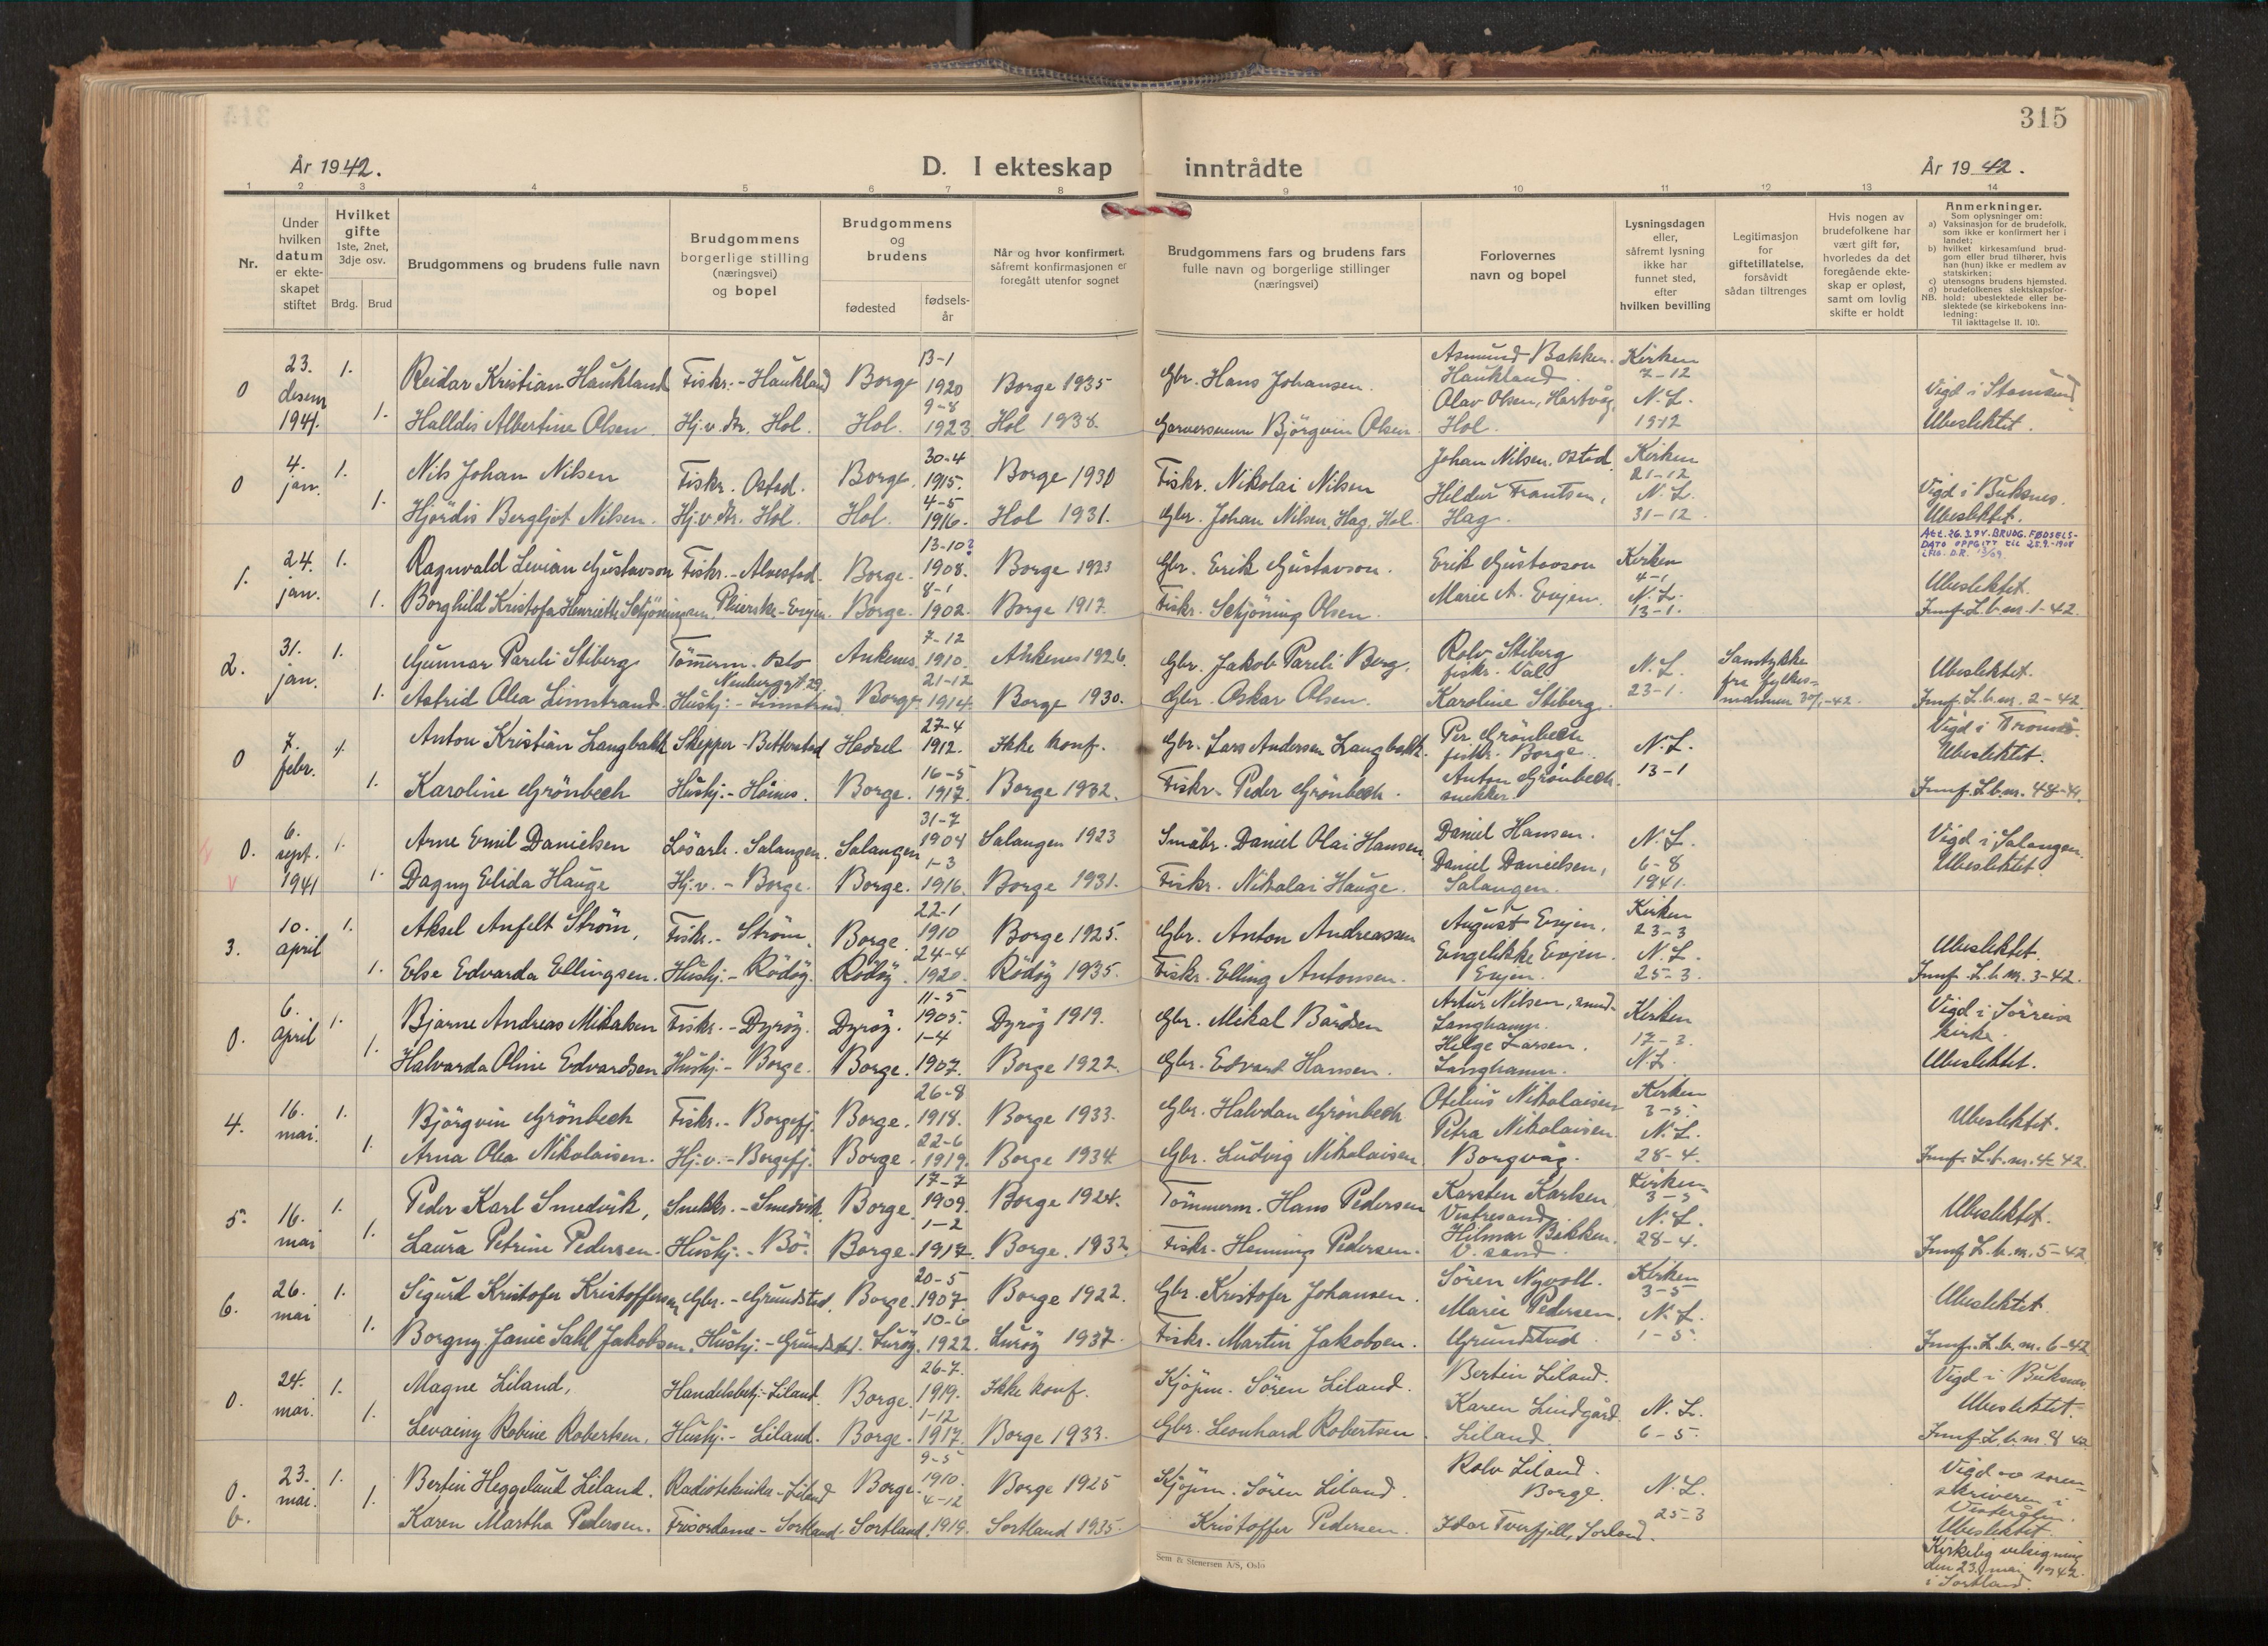 315
År 1942.
D. I ekteskap inntrådte
År 1942.
1 2 3 4 5 6 7 8 9 10 11 12 13 14
Nr.
Under hvilken datum er ekteskapet stiftet
Hvilket gifte 1ste, 2net, 3dje osv.
Brdg. Brud
Brudgommens og brudens fulle navn
Brudgommens borgerlige stilling (næringsvei) og bopel
Brudgommens og brudens
fødested
fødselsår
Når og hvor konfirmert, såfremt konfirmasjonen er foregått utenfor sognet
Brudgommens fars og brudens fars fulle navn og borgerlige stillinger (næringsvei)
Forlovernes navn og bopel
Lysningsdagen eller, såfremt lysning ikke har funnet sted, efter hvilken bevilling
Legitimasjon for giftetillatelse, forsåvidt sådan tiltrenges
Hvis nogen av brudefolkene har vært gift før, hvorledes da det foregående ekteskap er opløst, samt om lovlig skifte er holdt
Anmerkninger.
Som oplysninger om:
a) Vaksinasjon for de brudefolk, som ikke er konfirmert her i landet;
b) hvilket kirkesamfund brudgom eller brud tilhører, hvis han (hun) ikke er medlem av statskirken;
c) utensogns brudens hjemsted.
d) brudefolkenes slektskapsforhold: ubeslektede eller beslektede (se kirkebokens innledning:
NB. Til iakttagelse II. 10).
0 23. desem 1941. 1. Reidar Kristian Haukland Fiskr. - Haukland Borge 13-1 1920 Borge 1935 Gbr. Hans Johansen. Asmund Bakken. Haukland. Kirken 7-12
1. Halldis Albertine Olsen. Hj.v. dtr. Hol. Hol. 9-8 1923 Hol 1938. Garversvenn Björgvin Olsen. Olav Olsen, Hartvåg, Hol. N.L. 19-12 Vigd i Stamsund Ubeslektet.
0 4. jan. 1. Nils Johan Nilsen Fiskr. Ostad. Borge. 30-4 1915. Borge 1930 Fiskr. Nikolai Nilsen Johan Nilsen, Ostad. Kirken 21-12
1. Hjördis Bergljot Nilsen. Hj.v. dtr. Hol. Hol. 4-5 1916. Hol 1931. Gbr. Johan Nilsen, Hag, Hol. Hildur Frantsen, Hag. N.L. 31-12 Vigd i Buksnes. Ubeslektet.
1. 24. jan. 1. Ragnvald Levian Gustavson Fiskr. - Alvestad. Borge. 13-10? 1908. Borge 1923 Gbr. Erik Gustavson. Erik Gustavson Kirken 4-1 Att. 26.3.74. BRUDG. FØDSELSDATO OPPGITT til 25.9.-1908 IFLG. D.R.
1. Borghild Kristofa Henriette Schjöningsen. Pleierske - Evjen. Borge. 8-1 1902. Borge 1917. Fiskr. Schjöning Olsen. Marie A. Evjen. N.L. 13-1. Ubeslektet. Jmf. L.b. nr. 1-42.
2. 31. jan. 1. Gunnar Pareli Stiberg Tömerm. Oslo Neuberggt. 29 Ankenes 7-12 1910. Ankenes 1926. Gbr. Jakob Pareli Berg. Rolv Stiberg fiskr. Val N.L. 23-1. Samtykke fra fylkesmannen 30/1-42.
1. Astrid Olea Limstrand. Hushj: - Limstrand Borge 21-12 1914. Borge 1930. Gbr. Oskar Olsen. Karoline Stiberg. Ubeslektet. Jmf. L.b. nr. 2-42
0 7. febr. 1. Anton Kristian Langbakk Skipper - Bitterstad Hadsel 27-4 1912. Ikke konf. Gbr. Lars Andersen Langbakk. Per Grönbech fiskr. Borge. N.L. 13-1 Vigd i Tromsö.
1. Karoline Grönbech Hushj: - Haines. Borge. 16-5 1917. Borge 1932. Fiskr. Peder Grönbech. Anton Grönbech. snekker. Ubeslektet. Jmf. L.b. nr. 48-41.
0. 6. sept. 1941 1. Arne Emil Danielsen Lösarb. Salangen. Salangen 31-7 1904 Salangen 1923 Småbr. Daniel Olai Hansen Daniel Hansen. N.L. 6-8 1941. Vigd i Salangen.
1. Dagny Elida Hauge Hj.v. - Borge. Borge. 1-3 1916. Borge 1931. Fiskr. Nikolai Hauge. Daniel Danielsen, Salangen. Ubeslektet.
3. 10. april 1. Aksel Anfelt Ström, Fiskr. - Ström. Borge. 22-1 1910 Borge 1925. Gbr. Anton Andreassen August Evjen. Kirken 23-3
1. Else Edvarda Ellingsen. Hushj: - Rödöy. Rödöy. 24-4 1920. Rödöy 1935. Fiskr. Elling Antonsen. Engelikke Evjen. Evjen. N.L. 25-3. Ubeslektet. Jmf. L.b. nr. 3-42.
0. 6. april 1. Bjarne Andreas Mikalsen Fiskr. - Dyröy. Dyröy. 11-5 1905. Dyröy 1919. Gbr. Mikal Bårdsen Artur Nilsen, Langhamn. Kirken 17-3. Vigd i Sörreisa kirke.
1. Halvarda Oline Edvardsen Hushj: - Borge. Borge. 1-4 1907. Borge 1922. Gbr. Edvard Hansen. Helge Larsen. Langhamn. N.L. Ubeslektet.
4. 16. mai. 1. Björgvin Grönbech Fiskr. - Borgefj. Borge. 26-8 1918. Borge 1933. Gbr. Halvdan Grönbech Otelius Nikolaisen Kirken 3-5.
1. Arna Olea Nikolaisen. Hj.v. - Borgefj. Borge. 22-6 1919. Borge 1934 Gbr. Ludvig Nikolaisen Petra Nikolaisen. Borgvåg. N.L. 28-4. Ubeslektet. Jmf. L.b. nr. 4-42.
5. 16. mai 1. Peder Karl Smedvik, Snekkr. - Smedvik. Borge. 17-7 1909. Borge 1924. Tömmerm. Hans Pedersen Karsten Karlsen, Vestresand. Kirken 3-5
1. Laura Petrine Pedersen. Hushj: - Bö. Borge. 1-2 1917. Borge. 1932. Fiskr. Henning Pedersen. Hilmar Bekken. V. sand. N.L. 28-4. Ubeslektet. Jmf L.b. nr. 5-42
6. 26. mai 1. Sigurd Kristofer Kristoffersen Gbr. - Grundstad. Borge. 20-5 1907. Borge 1922. Gbr. Kristofer Johansen. Sören Nygvoll. Kirken 3-5
1. Borgny Janie Sahl Jakobsen. Hushj: - Grundstad. Luröy. 10-6 1922. Luröy 1937. Fiskr. Martin Jakobsen. Marie Pedersen. Grundstad N.L. 1-5. Ubeslektet. Jmf. L.b. nr. 6-42
0. 24. mai. 1. Magne Liland, Handelsbetj: - Liland. Borge. 26-7. 1919. Ikke konf. Kjöpm. Sören Liland. Bertin Liland. Vigd i Buksnes
1. Levainy Robine Robertsen. Hushj: - Liland. Borge. 1-12 1917. Borge 1933. Gbr. Leonhard Robertsen. Karen Lindgård. Liland. N.L. 6-5. Ubeslektet. Jmf. L.b. nr. 8 42
0. 23. mai. 1. Bertin Heggelund Liland. Radiotekniker - Liland Borge. 9-5 1910. Borge 1925 Kjöpm. Sören Liland. Rolv Liland. Borge. N.L. 25-3 Vigd av sorenskriveren i Vesterålen.
6. 1. Karen Martha Pedersen. Frisördame - Sortland. Sortland. 4-12 1919. Sortland 1935. Kristoffer Pedersen. Idar Tverfjell, Sortland. Ubeslektet. Kirkelig velsigning den 23. mai 1942. i Sortland.
Sem & Stenersen A/S, Oslo